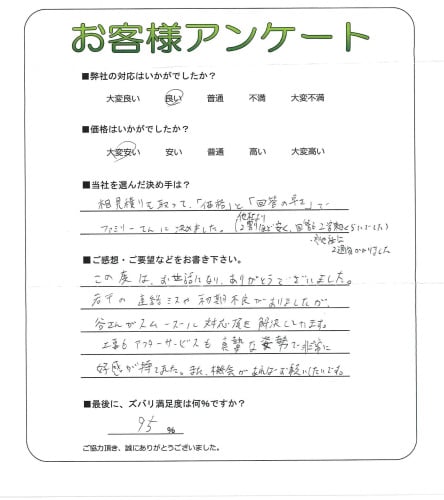 お客様アンケート
■弊社の対応はいかがでしたか?
大変良い 良い 普通 不満 大変不満
■価格はいかがでしたか?
大変安い 安い 普通 高い 大変高い
■当社を選んだ決め手は?
相見積りを取って、「価格」と「回答の早さ」で
ファミリーてんに決めました。
他社より
(2割ほど安く、回答も2日間くらいでした)
・他社は
2週間かかりました
■ご感想・ご要望などをお書き下さい。
この度は、お世話になり、ありがとうございました。
若干の連絡ミスや初期不良がありましたが、
谷さんがスムーズに対応頂き解決してます。
工事もアフターサービスも真摯な姿勢で非常に
好感が持てました。また、機会があればお願いしたいです。
■最後に、ズバリ満足度は何%ですか?
95 %
ご協力頂き、誠にありがとうございました。